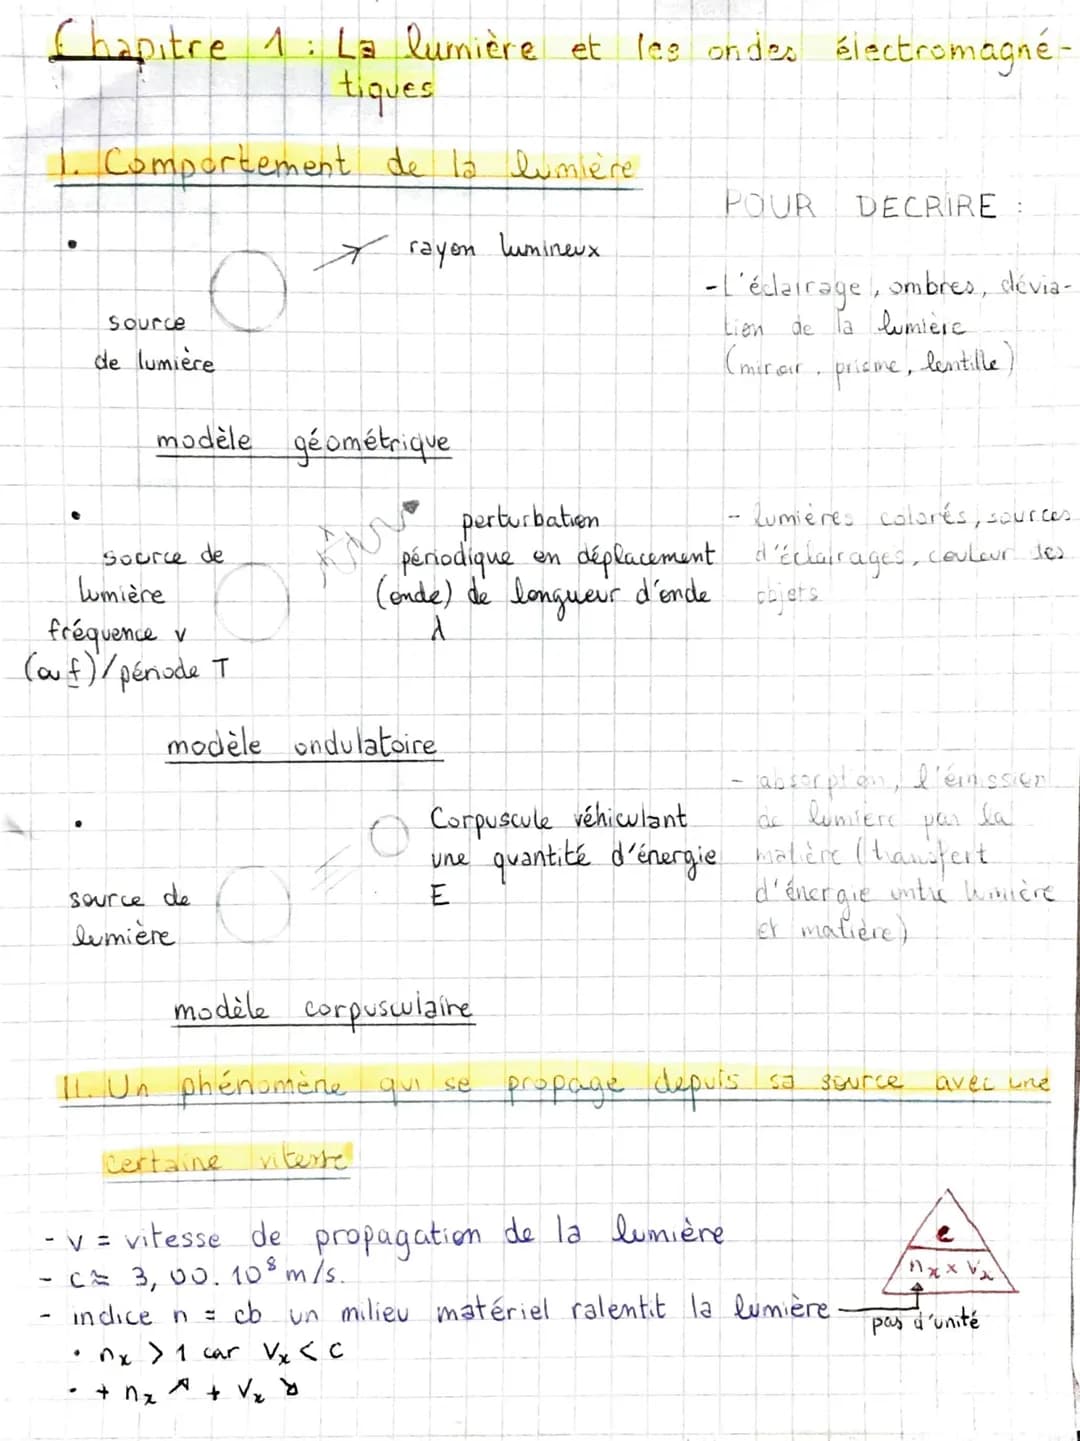 Chapitre 1 : La lumière et les ondes électromagné-
tiques
I. Comportement de la lumière
POUR DECRIRE :
rayon lumineux
source
de lumière
-L'éclairage, ombres, dévia-
tion de la lumière
(miroir, prisme, lentille)
modèle géométrique
source de
lumière
fréquence ν
(ou f)/période T
perturbation
périodique en déplacement
(onde) de longueur d'onde
λ
- lumières colorés, sources
d'éclairages, couleur des
objets
modèle ondulatoire
source de
lumière
Corpuscule véhiculant
une quantité d'énergie
E
- absorption, l'émission
de lumière par la
matière (transfert
d'énergie entre lumière
et matière)
modèle corpusculaire
II. Un phénomène qui se propage depuis sa source avec une
certaine vitesse
- v = vitesse de propagation de la lumière
- c ≈ 3,00.10⁸ m/s.
- indice n = cb un milieu matériel ralentit la lumière
• nx > 1 car Vx < c
• + nx ↗ + Vx ↘
c
nx × Vx
pas d'unité